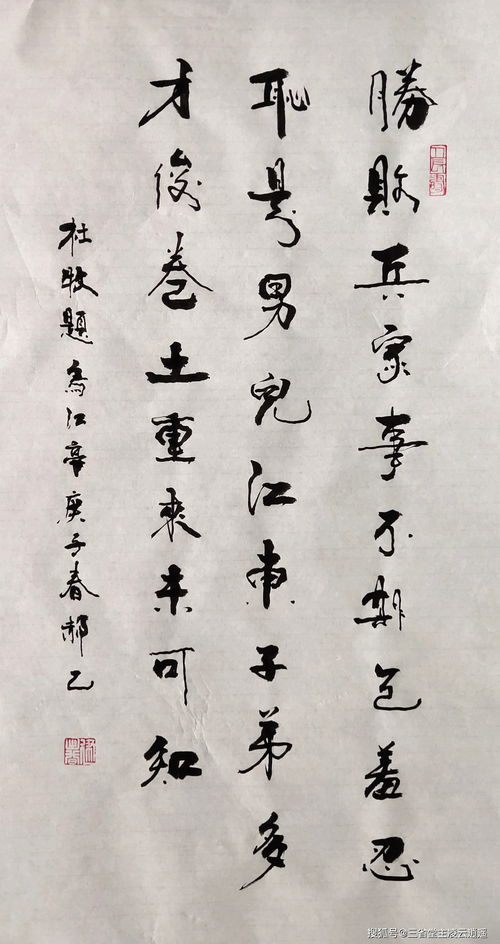 勝敗兵家事不期包羞忍
恥是男兒江東子弟多
才俊卷土重來未可知
杜牧題烏江亭庚子春郝乙
搜狐号@三省堂主凌云逍遥